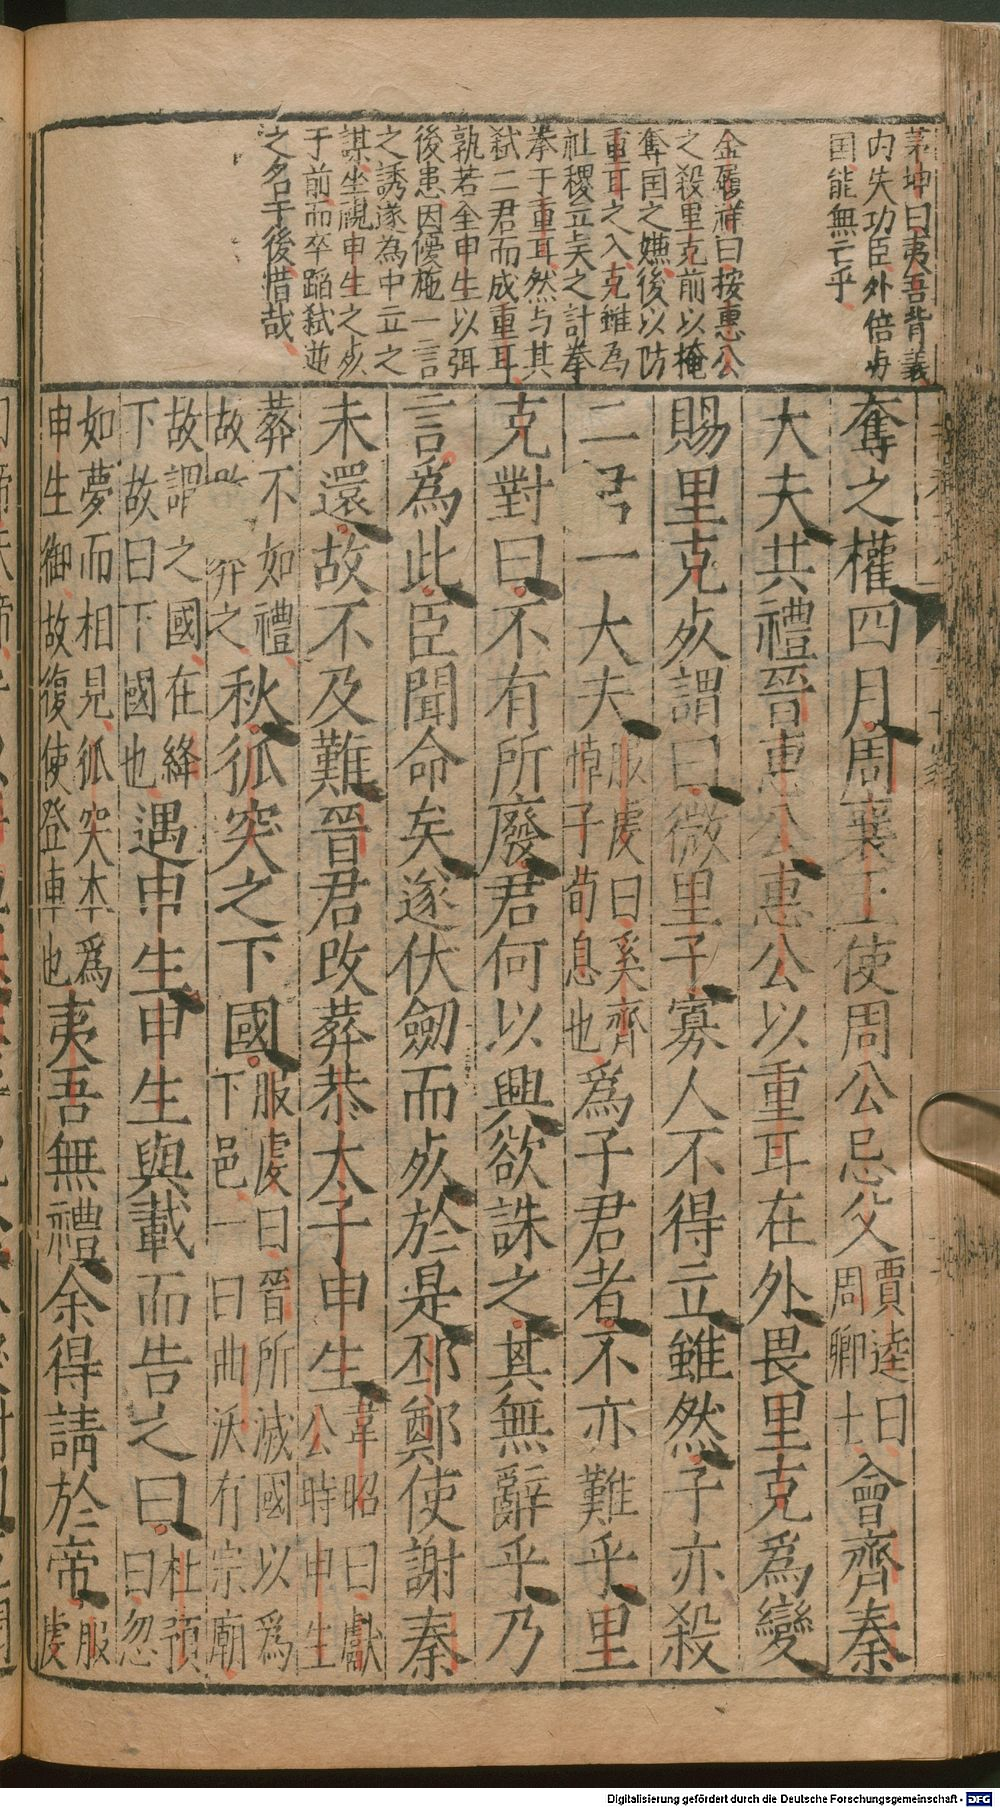 茅坤曰夷吾背義
内失功臣外倍与
囯能無亡乎
金履祥曰按惠公
之殺里克前以掩
奪囯之嫌後以防
重耳之入克雖為
社稷立矣之計拳
拳于重耳然与其
弑二君而成重耳
孰若全申生以弭
後患因優施一言
之誘遂為中立之
謀坐視申生之歿
于前而卒蹈弑逆
之名于後惜哉
奪之權四月周襄王使周公忌父賈逵曰周卿士會齊秦
大夫共禮晉惠公惠公以重耳在外畏里克為變
賜里克死謂曰微里子寡人不得立雖然子亦殺
二君一大夫服虔曰奚齊悼子荀息也為子君者不亦難乎里
克對曰不有所廢君何以興欲誅之其無辭乎乃
言為此臣聞命矣遂伏劔而死於是邳鄭使謝秦
未還故不及難晉君改葬恭太子申生韋昭曰獻公時申生
葬不如禮故改葬之秋狐突之下國服虔曰晉所滅國以為下邑一曰曲沃有宗廟
故謂之國在絳下故曰下國也遇申生申生與載而告之曰杜預曰忽
如夢而相見狐突本為申生御故復使登車也夷吾無禮余得請於帝服虔
Digitalisierung gefördert durch die Deutsche Forschungsgemeinschaft - DFG